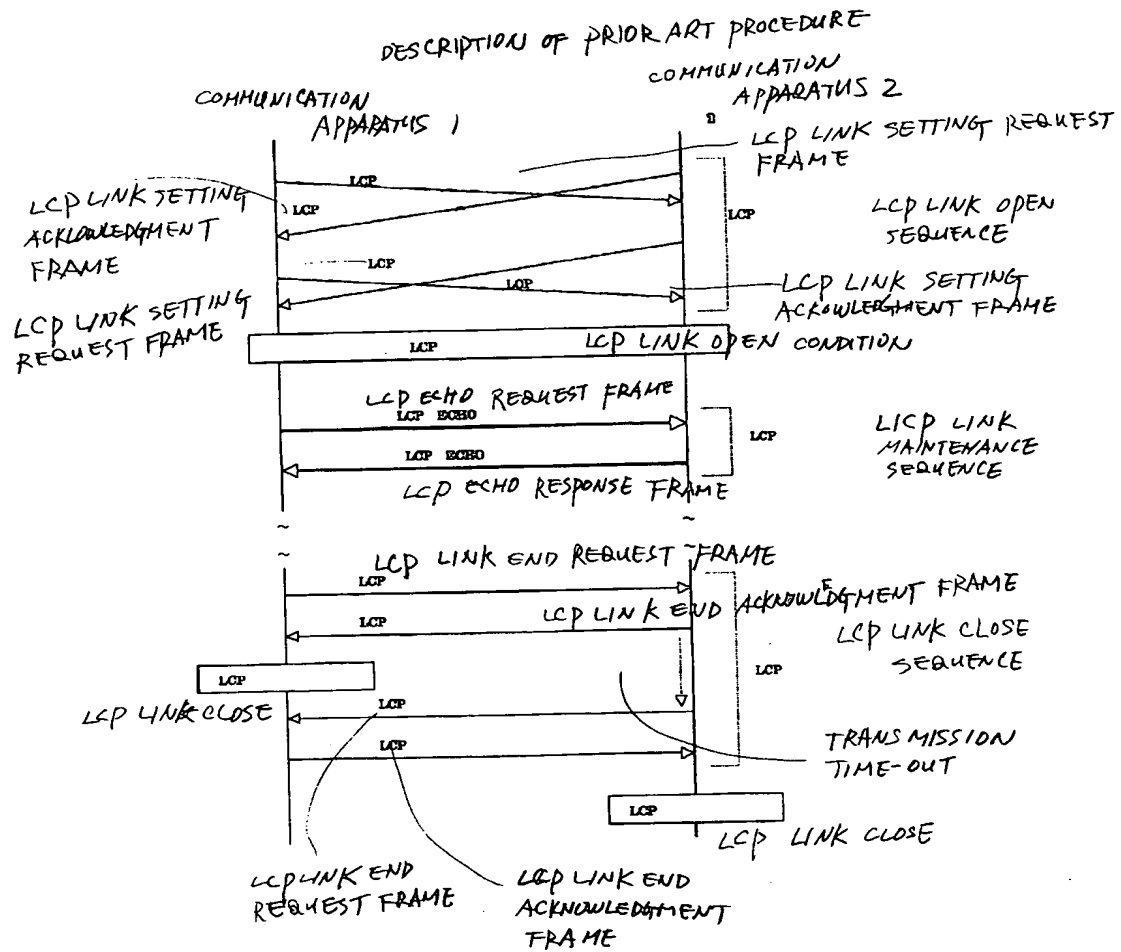 DESCRIPTION OF PRIOR ART PROCEDURE
COMMUNICATION
APPARATUS 1
COMMUNICATION
APPARATUS 2
LCP LINK SETTING REQUEST
FRAME
LCP
LCP LINK SETTING
ACKLOWLEDGMENT
FRAME
LCP
LCP
LCP LINK OPEN
SEQUENCE
LCP
LCP
LCP LINK SETTING
ACKOWLEDGMENT FRAME
LCP LINK SETTING
REQUEST FRAME
LCP
LCP LINK OPEN CONDITION
LCP ECHO REQUEST FRAME
LCP ECHO
LCP
LICP LINK
MAINTENANCE
SEQUENCE
LCP ECHO
LCP ECHO RESPONSE FRAME
~ ~
~ ~
LCP LINK END REQUEST FRAME
LCP
LCP LINK END ACKNOWLEDGMENT FRAME
LCP
LCP LINK CLOSE
SEQUENCE
LCP
LCP
LCP LINK CLOSE
LCP
LCP
TRANSMISSION
TIME-OUT
LCP
LCP LINK CLOSE
LCP LINK END
REQUEST FRAME
LCP LINK END
ACKNOWLEDGMENT
FRAME